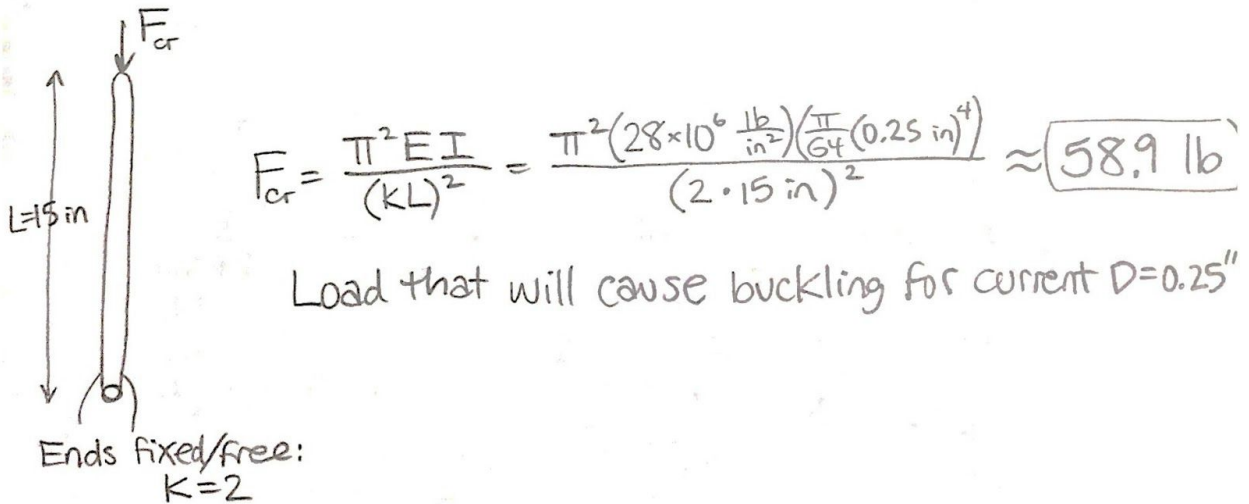 F_cr
L=15 in
F_cr = π²EI/(KL)² = π²(28×10⁶ lb/in²)(π/64(0.25 in)⁴)/(2·15 in)² ≈ 58.9 lb
Load that will cause buckling for current D=0.25"
Ends fixed/free:
K=2